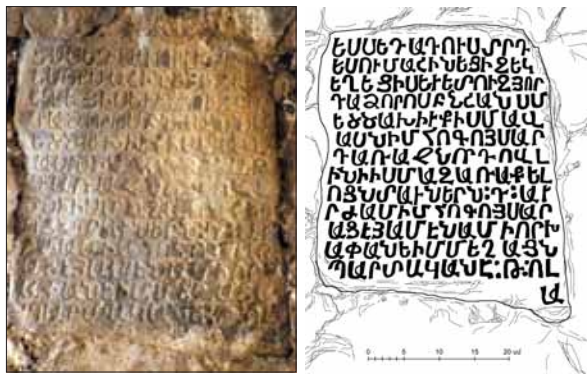 ԵՍՍԵԴԱԴՈՒՍՏՐԴ
ԵՍՈՒՄԱՇԻՆԵՑԻԶԵԿ
ԵՂԵՑԻՍԵՒԵՏՈՒԶՅՈՐ
ԴԱՁՈՐՈՍԲՆՀԱՆՍՄ
ԵԾԾԱԽԻՒՔԻՍՄԱՎ
ԱՍՆԻՄՀՈԳՈՅՍԱՐ
ԴԱՌԱՋՆՈՐԴՈՎԼ
ԻՆԻԻՍՄԱԶԱՌԱՔԵԼ
ՈՑՆՄԱՒՆԵՐՍ:Դ:ԱՒ
ՐԺԱՄԻՄՀՈԳՈՅՍԱՐ
ԱՑԷՅԱՄԷՆԱՄԻՈՐԽ
ԱՓԱՆԵԻՄՄԵՂԱՑՆ
ՊԱՐՏԱԿԱՆԷ:Թ:ՈԼ
Ա
0 5 10 15 20 սմ